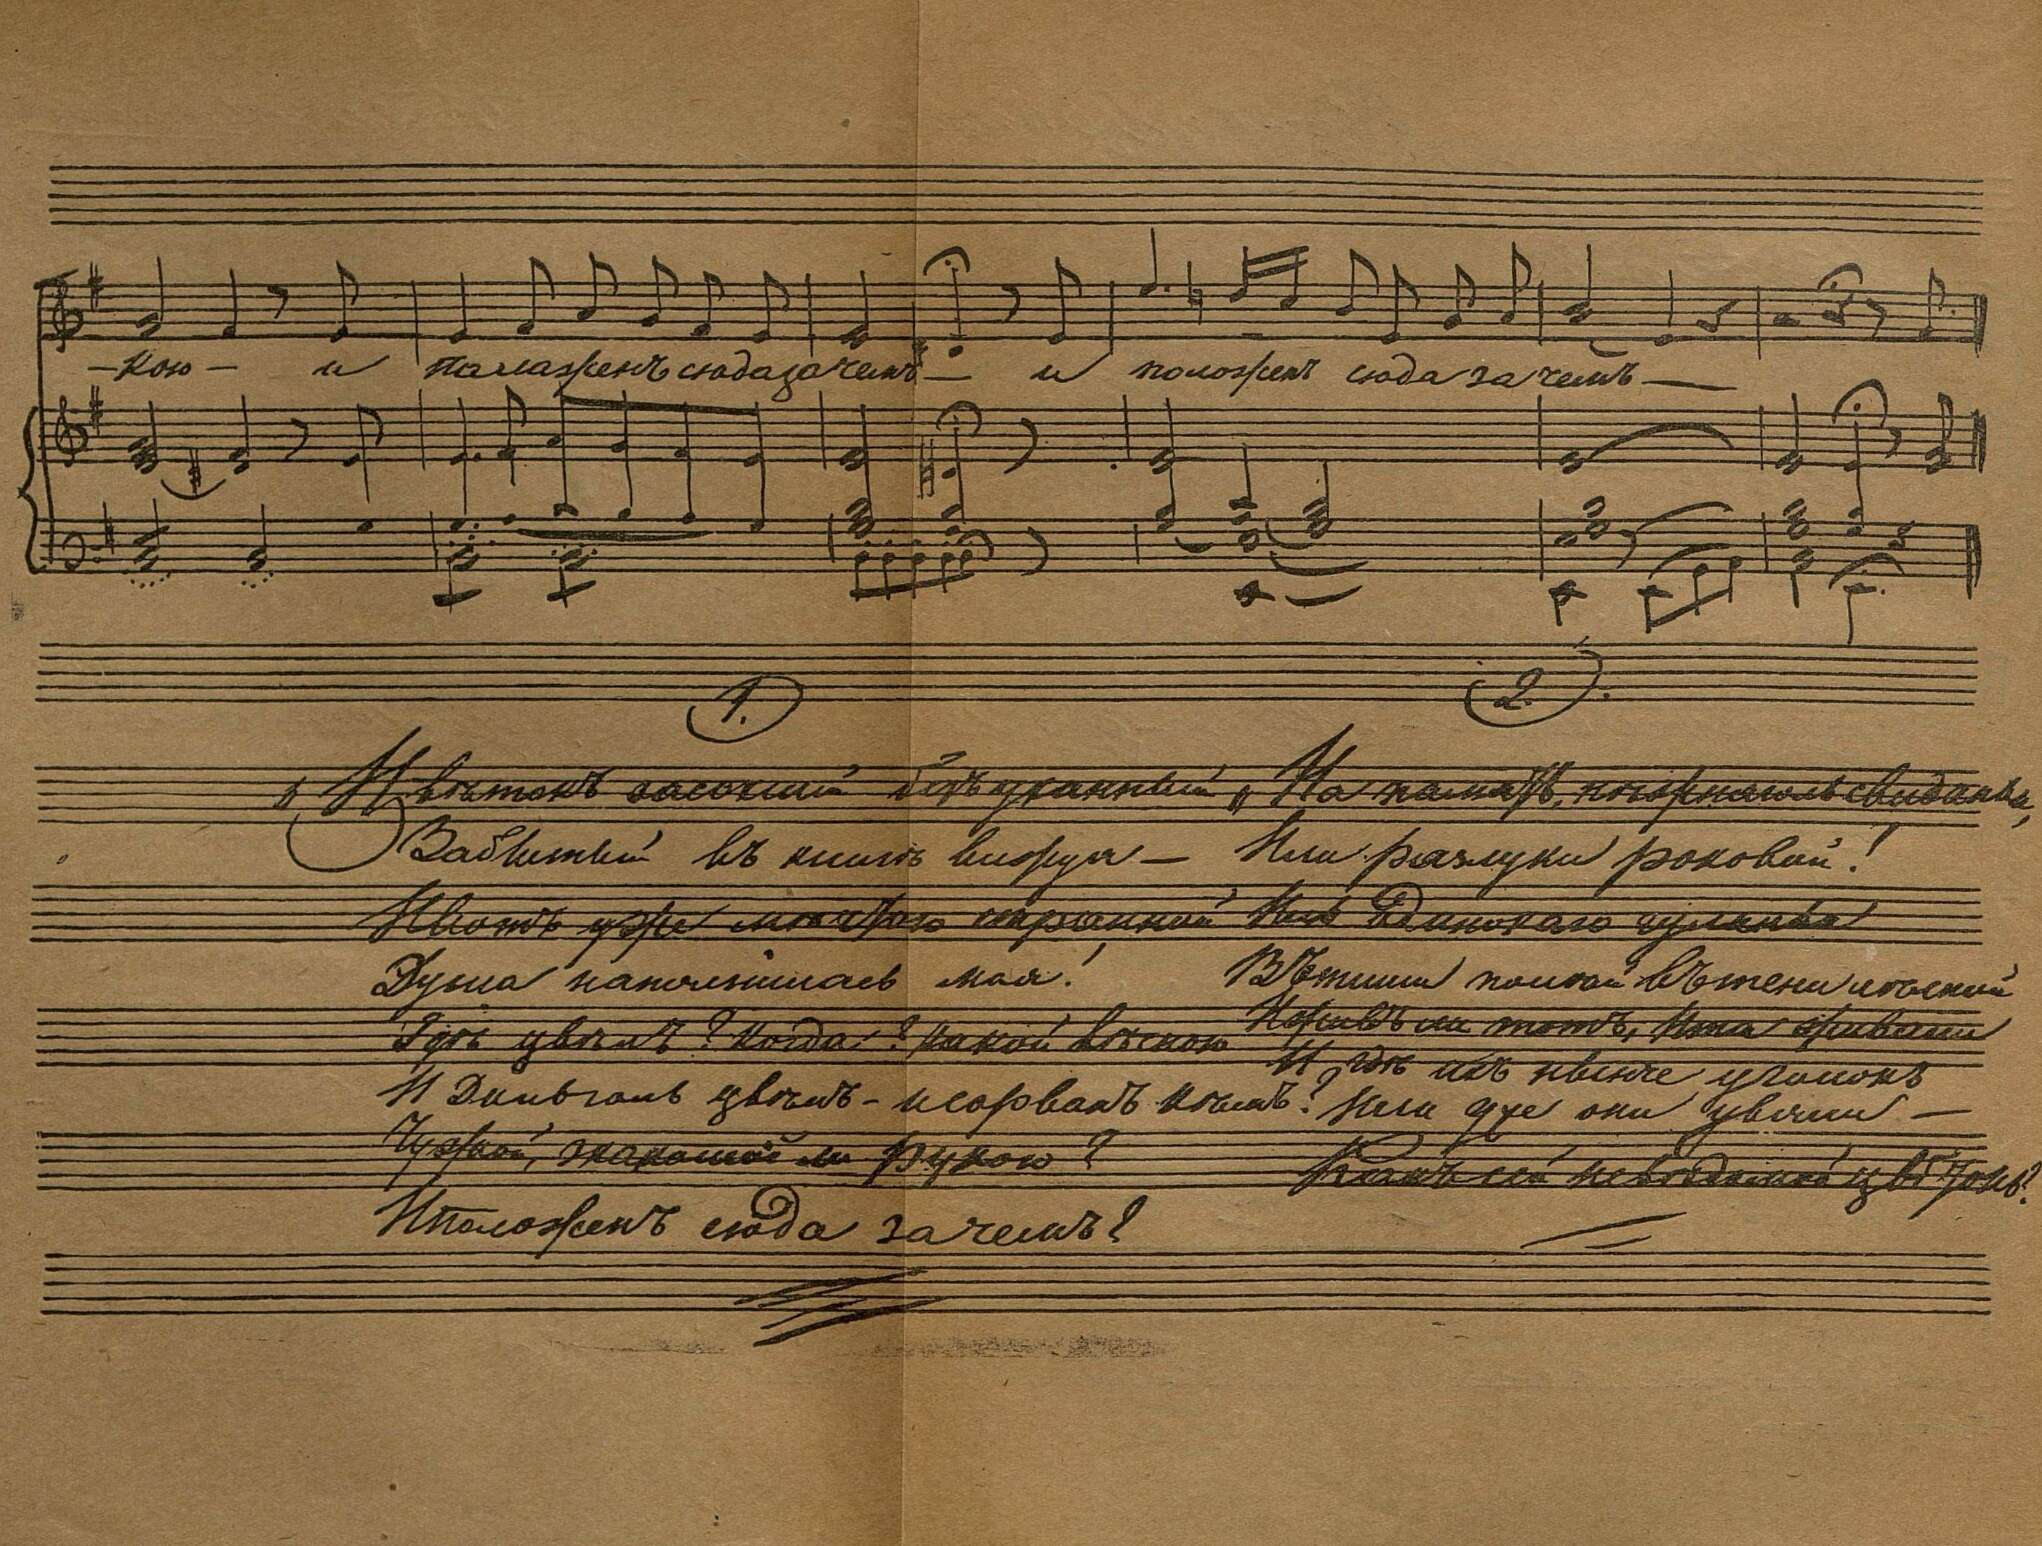 — кою — и положенъ сюда зачемъ — и положенъ сюда зачемъ —
1.
„ Цвѣтокъ засохшій безуханный
Забытый въ книгѣ вижу я —
И вотъ уже мечтою странной
Душа наполнилась моя!
Гдѣ цвѣлъ? когда? какой весною
И долголь цвѣлъ — и сорванъ кѣмъ?
Чужой, знакомой ли рукою?
И положенъ сюда зачемъ?
2.
„ На память, нѣжнаголь свиданья,
Или разлуки роковой!
Иль одинокаго гулянья
Въ тиши полей въ тени лѣсной
И живъ ли тотъ, и та жива ли
И гдѣ ихъ нынче уголокъ
Или уже они увяли —
Какъ сей неведомый цвѣтокъ?